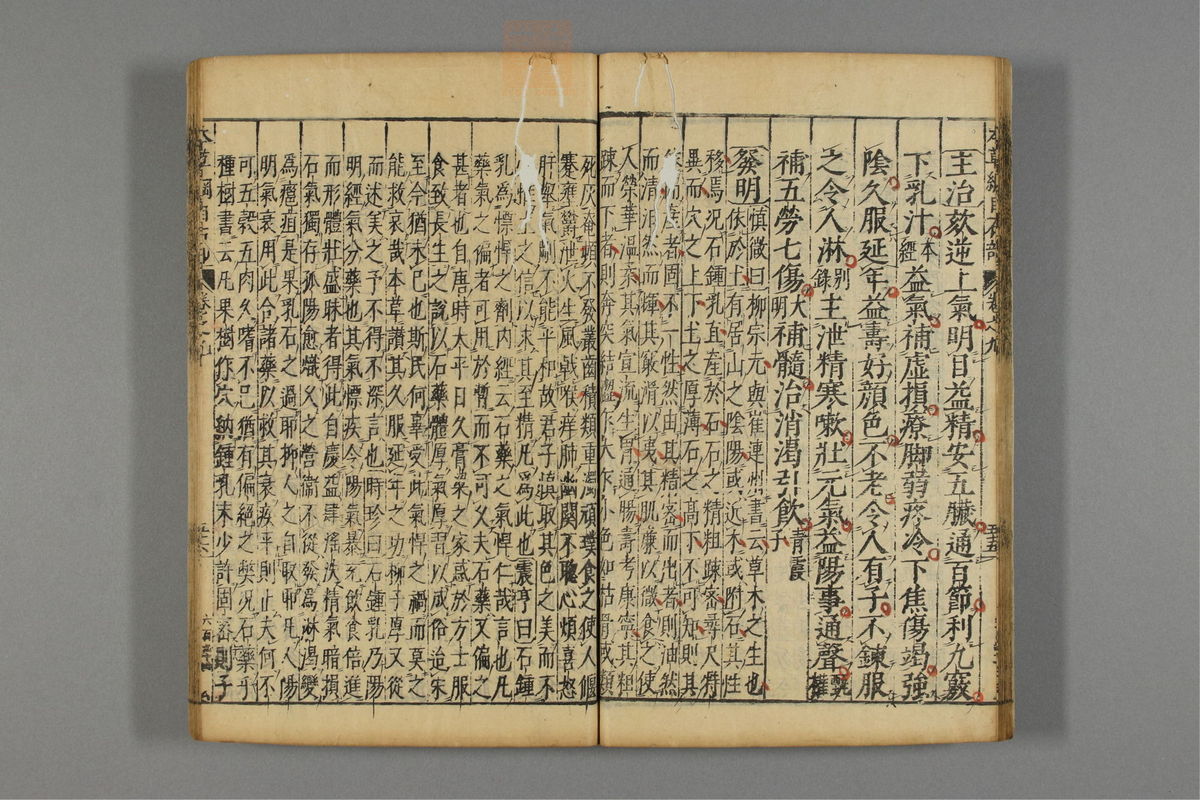 主治欬逆上氣明目益精安五臟通百節利九竅
下乳汁本經益氣補虛損療脚弱疼冷下焦傷竭強
陰久服延年益壽好顏色不老令人有子不鍊服
之令人淋別錄主泄精寒嗽壯元氣益陽事通聲甄權
補五勞七傷大明補髓治消渴引飲青霞子
發明慎微曰柳宗元與崔連州書云草木之生也
依於土有居山之陰陽或近木或附石其性
移焉况石鍾乳直產於石石之精粗踈密尋尺特
異而穴之上下土之厚薄石之高下不可知則其
依而產者固不一性然由其精密而出者則油然
而清炯然而輝其竅滑以夷其肌廉以微食之使
人榮華溫柔其氣宣流生胃通腸壽考康寧其粗
踈而下者則奔突結澀乍大乍小色如枯骨或類
死灰奄顇不發叢齒積纇重濁頑璞食之使人偃
蹇壅鬱泄火生風戟喉痒肺幽關不聰心煩喜怒
肝舉氣剛不能平和故君子慎取其色之美而不
必惟土之信以求其至精凡爲此也震亨曰石鍾
乳爲慓悍之劑内經云石藥之氣悍仁哉言也凡
藥氣之偏者可用於暫而不可久夫石藥又偏之
甚者也自唐時太平日久膏粱之家惑於方士服
食致長生之說以石藥體厚氣厚習以成俗迨宋
至今猶未已也斯民何辜受此氣悍之禍而莫之
能救哀哉本草讚其久服延年之功柳子厚又從
而述美之予不得不深言也時珍曰石鍾乳乃陽
明經氣分藥也其氣慓疾令陽氣暴充飲食倍進
而形體壯盛昧者得此自慶益肆搖泆精氣暗損
石氣獨存孤陽愈熾久之營衛不從發爲淋渴變
爲癰疽是果乳石之過耶抑人之自取耶凡人陽
明氣衰用此合諸藥以救其衰疾平則止夫何不
可五穀五肉久嗜不已猶有偏絶之弊况石藥乎
種樹書云凡果樹作穴納鍾乳末少許固密則子